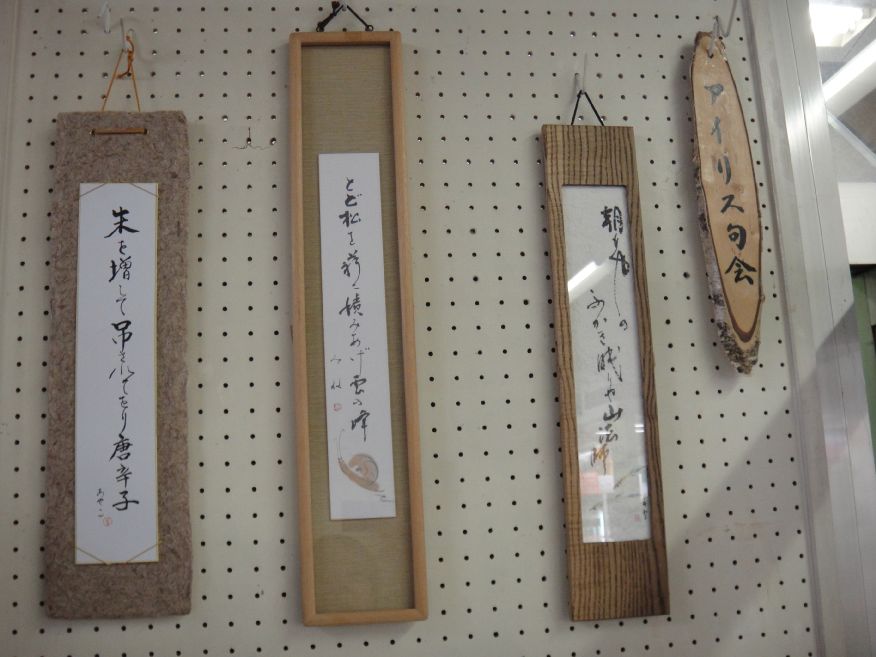 アイリス句会
朝もやの
ふかき眠りや山法師
とど松を積みあげ雲の峰
朱を増して吊されてをり唐辛子
あやこ